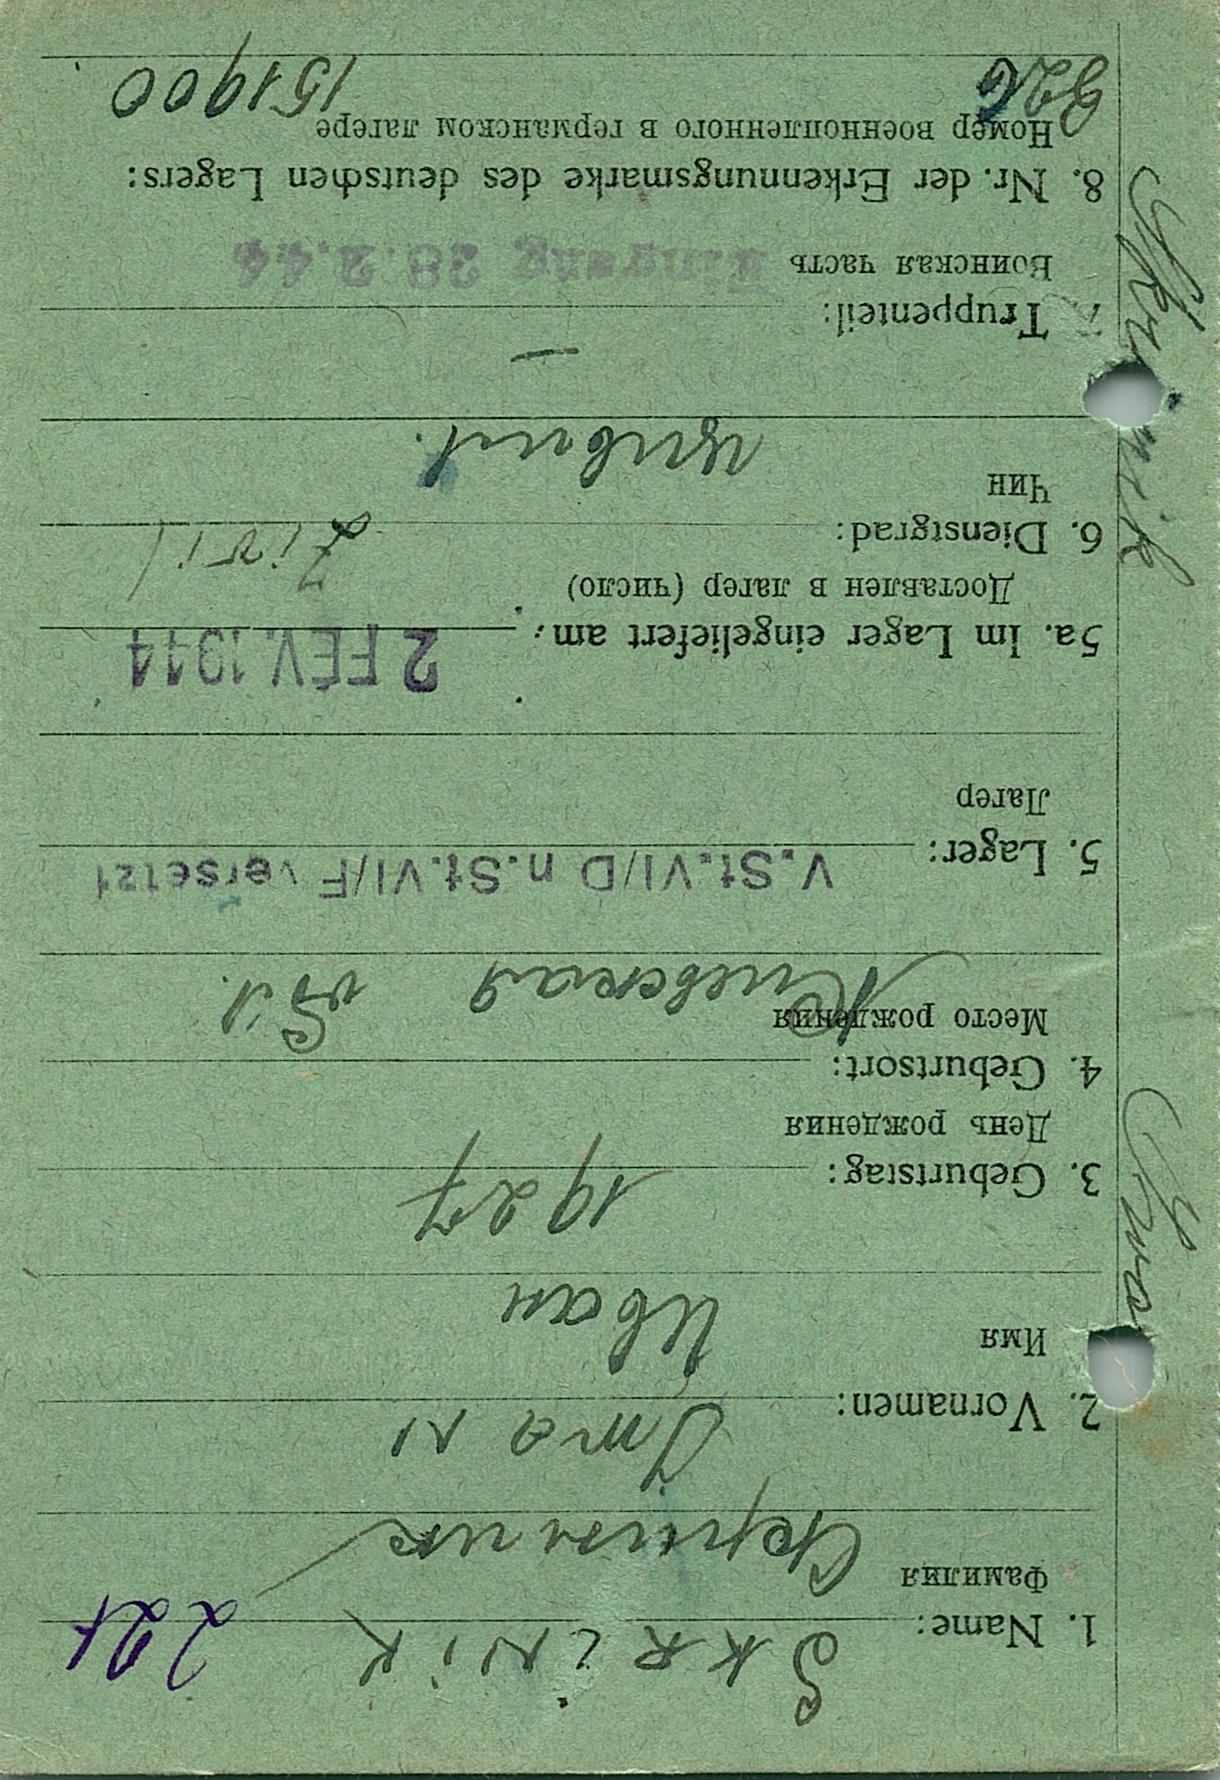 1. Name: SKRINIK 221
Фамилия Скриник
2. Vornamen: Iwan
Имя Иван
3. Geburtstag: 1927
День рождения
4. Geburtsort:
Место рождения Киевская обл.
V. St. VI/D n. St. VI/F versetzt
5. Lager:
Лагер
5a. Im Lager eingeliefert am: 2 FÉV. 1944
Доставлен в лагер (число)
6. Dienstgrad: Zivil
Чин цивил.
7. Truppenteil: —
Воинская часть Eingang 28.2.44
8. Nr. der Erkennungsmarke des deutschen Lagers:
Номер военнопленного в германском лагере
326 151900
Skrinik